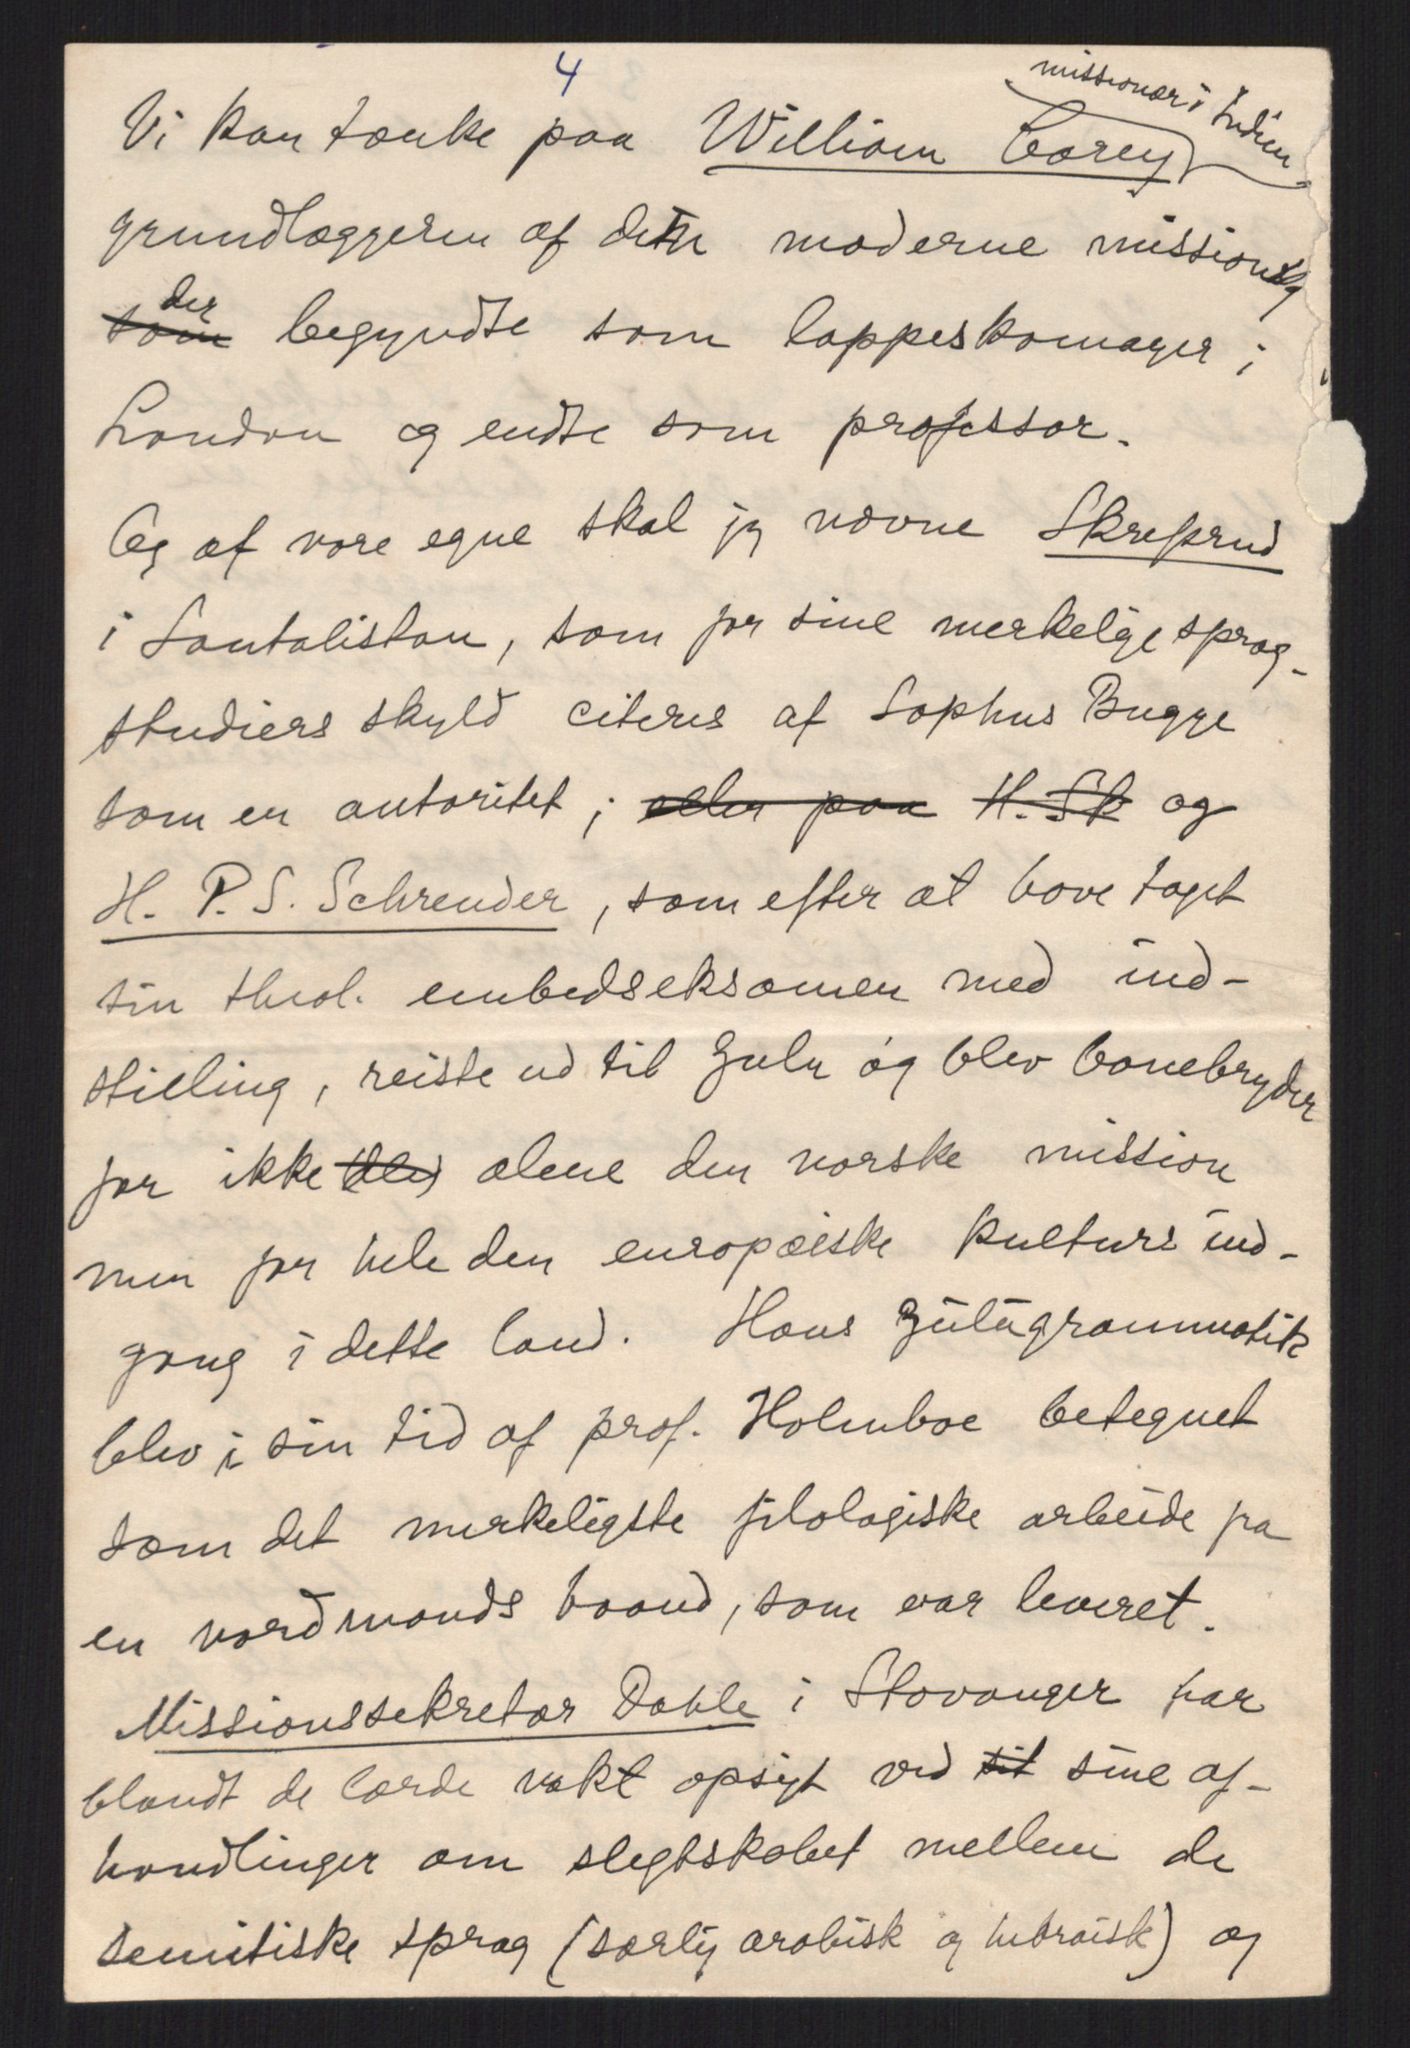 4
missionær i Indien
Vi kan tænke paa William Carey
grundlæggeren af den moderne mission og
som der begyndte som lappeskomager i
London og endte som professor.
Og af vore egne skal jeg nævne Skrefsrud
i Santalistan, som for sine merkelige sprog-
studiers skyld citeres af Sophus Bugge
som en autoritet; eller paa H. Sk og
H. P. S. Schreuder, som efter at have taget
sin theol. embedseksamen med ind-
stilling, reiste ud til Zulu og blev banebryder
for ikke alene den norske mission
men for hele den europæiske kulturs ind-
gang i dette land. Hans Zulugrammatik
blev i sin tid af prof. Holmboe betegnet
som det merkeligste filologiske arbeide fra
en nordmands haand, som var leveret.
Missionssekretær Dahle i Stavanger har
blandt de lærde vakt opsigt ved sit sine af-
handlinger om slegtskabet mellem de
semitiske sprog (særlig arabisk og hebraisk) og